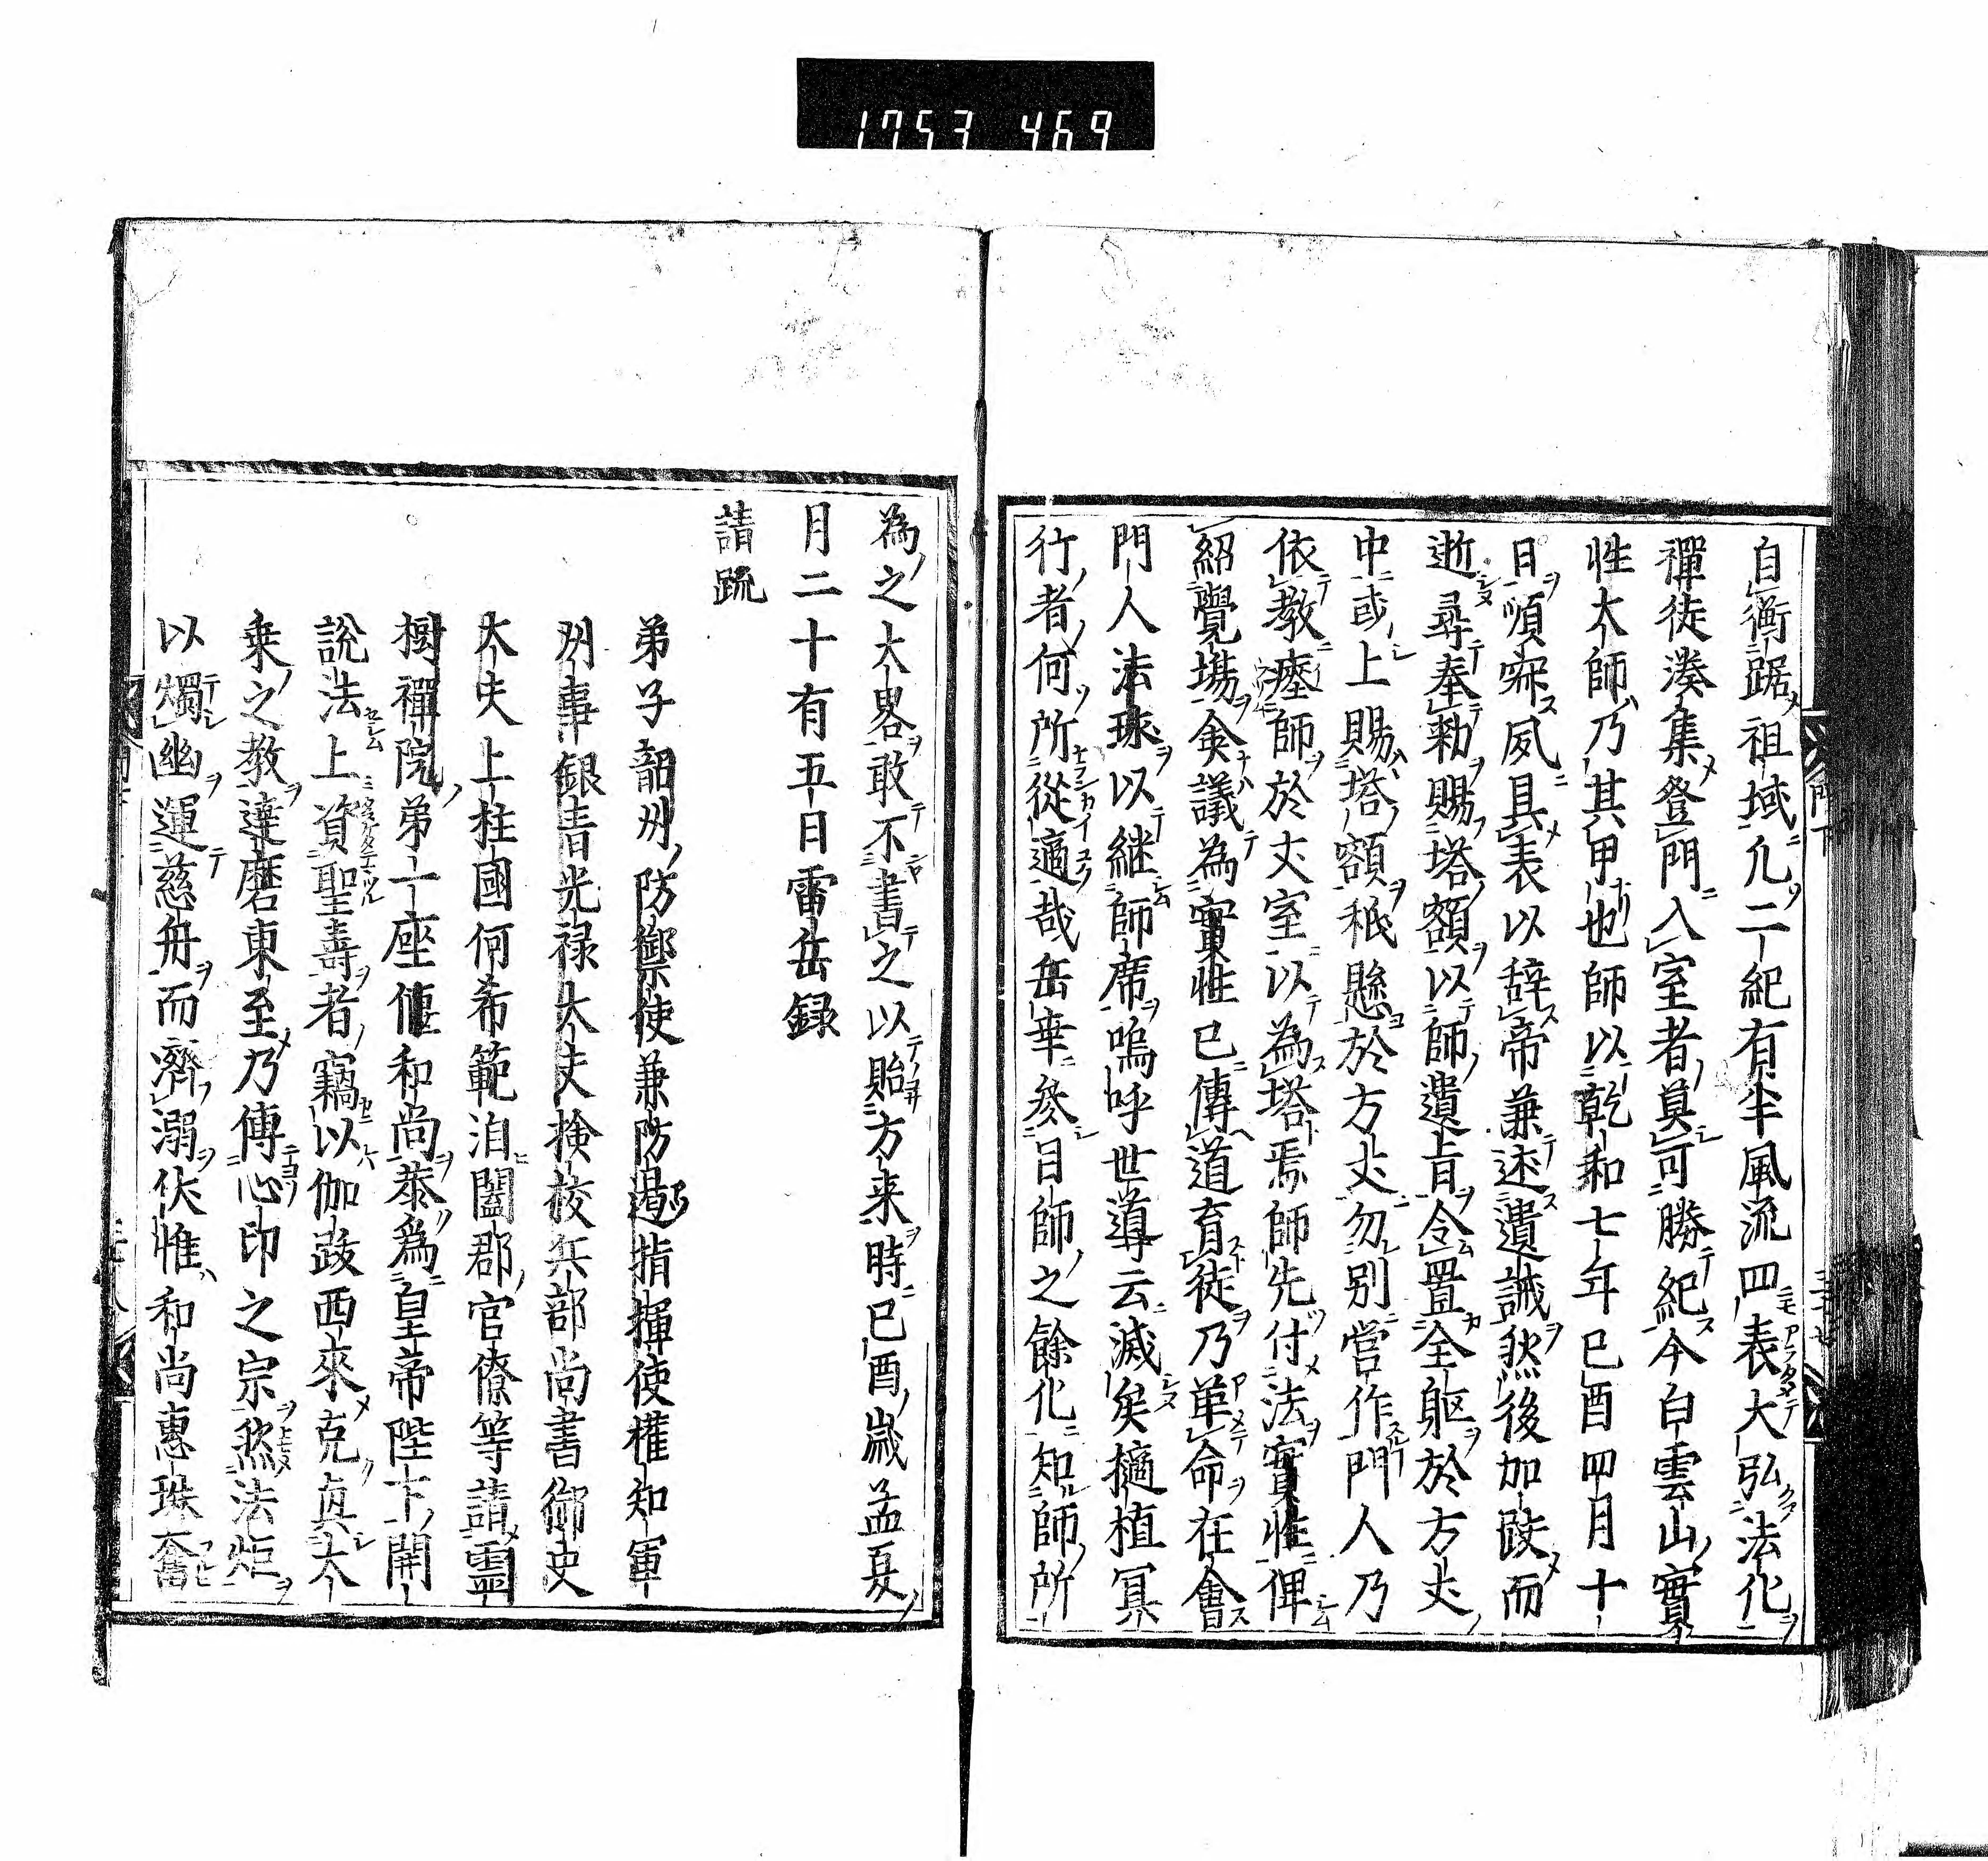 1753 469
自衡踞祖域凡二紀有半風流四表大弘法化
禪徒湊集登門入室者莫可勝紀今白雲山實
性大師乃其甲也師以乾和七年巳酉四月十
日順寂夙具表以辞帝兼述遺誡然後加趺而
逝尋奉勑賜塔額以師遺旨令置全軀於方丈
中或上賜塔額秖懸於方丈勿別営作門人乃
依教瘞師於丈室以為塔焉師先付法實性俾
紹覺塲僉議為實性已傳道育徒乃革命在會
門人法球以継師席嗚呼世導云滅矣擿植冥
行者何所從適哉岳幸參日師之餘化知師所
為之大畧敢不書之以貽方来時巳酉歳孟夏
月二十有五日雷岳録
請䟽
弟子韶州防禦使兼防遏指揮使權知軍
州事銀青光禄大夫檢校兵部尚書御史
大夫上柱國何希範洎闔郡官僚等請靈
樹禪院弟一座偃和尚恭爲皇帝陛下開
說法上資聖壽者竊以伽跂西來克真大
乗之教達磨東至乃傳心印之宗然法炬
以燭幽運慈舟而濟溺伏惟和尚惠珠奮